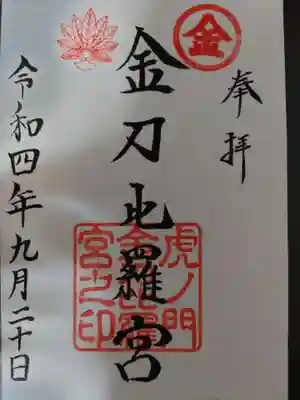 奉拝
金
金刀比羅宮
虎ノ門
金比羅
宮之印
令和四年九月二十日